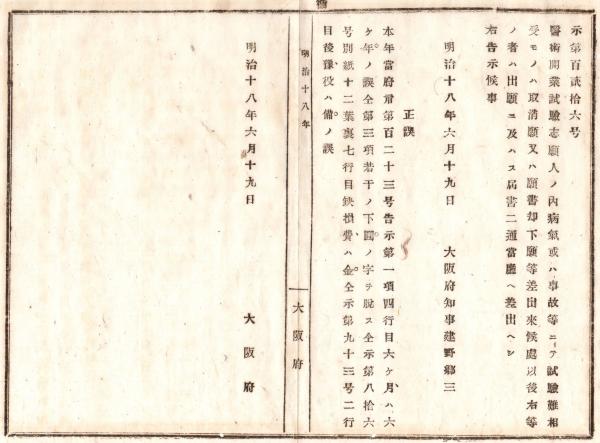 示第百貳拾六号
醫術開業試驗志願人ノ內病氣或ハ事故等ニテ試驗難相
受モノハ取消願又ハ願書却下願等差出來候處以後右等
ノ者ハ出願ニ及ハス屆書二通當廳ヘ差出ヘシ
右告示候事
明治十八年六月十九日 大阪府知事建野鄕三
正誤
本年當府甲第百二十三号告示第一項四行目六ケ月ハ六
ケ年ノ誤仝第三項若干ノ下圓ノ字ヲ脫ス仝示第八拾六
号別紙十二葉裏七行目鈌損費ハ金仝示第九十三号二行
目後豫役ハ備ノ誤
明治十八年
大阪府
明治十八年六月十九日
大阪府